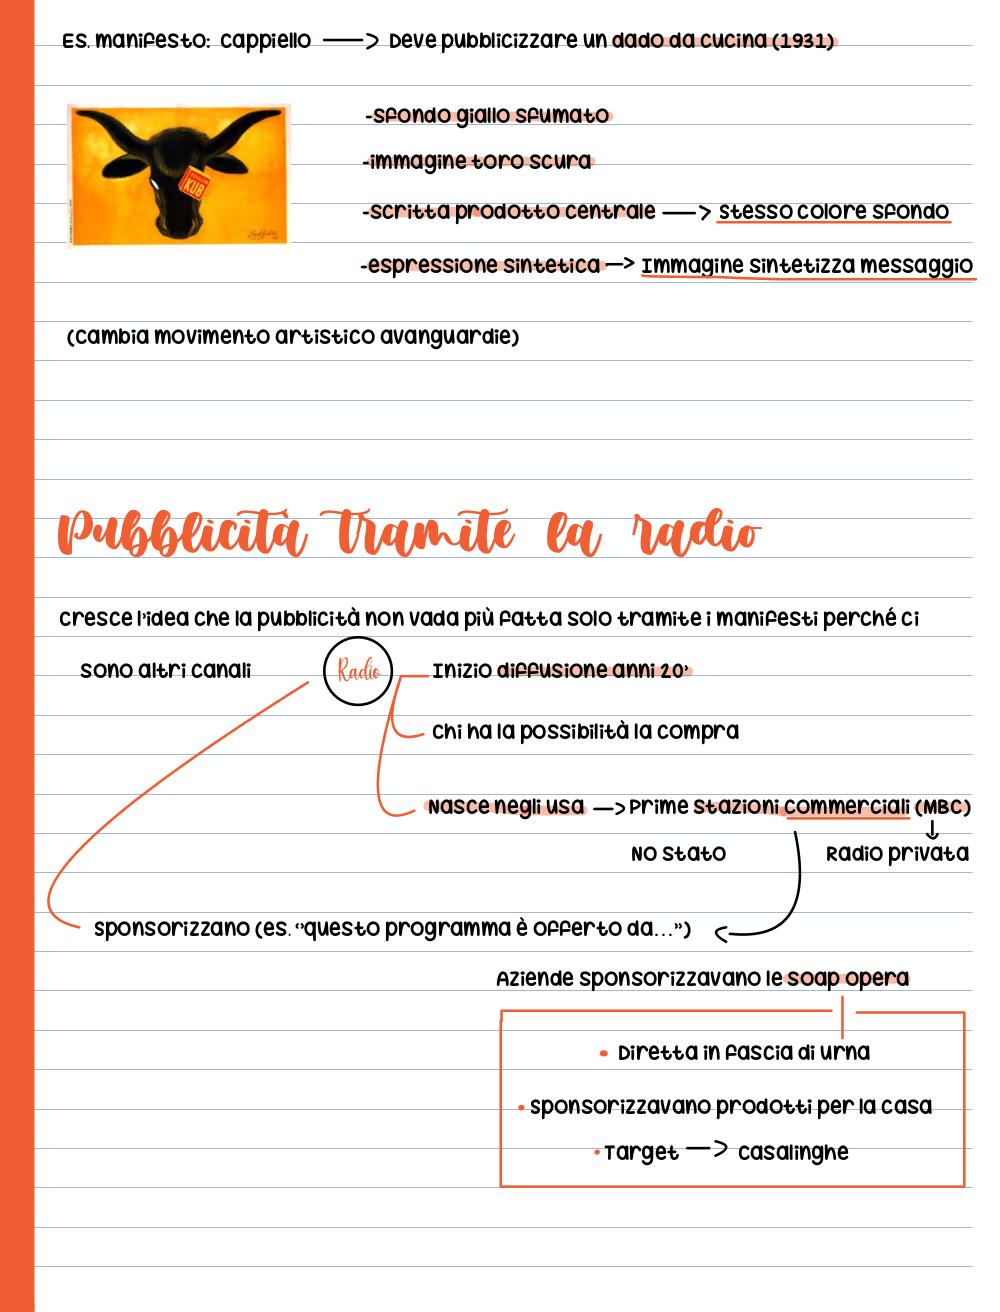 Es. manifesto: cappiello → Deve pubblicizzare un dado da cucina (1931)
-sfondo giallo sfumato
-immagine toro scura
KUB
-scritta prodotto centrale → stesso colore sfondo
-espressione sintetica → Immagine sintetizza messaggio
(cambia movimento artistico avanguardie)
Pubblicità tramite la radio
cresce l'idea che la pubblicità non vada più fatta solo tramite i manifesti perché ci
sono altri canali
Radio
Inizio diffusione anni 20'
Chi ha la possibilità la compra
Nasce negli usa → Prime stazioni commerciali (MBC)
No stato
Radio privata
sponsorizzano (es. "questo programma è offerto da...")
Aziende sponsorizzavano le soap opera
• Diretta in fascia di urna
• sponsorizzavano prodotti per la casa
• Target → casalinghe